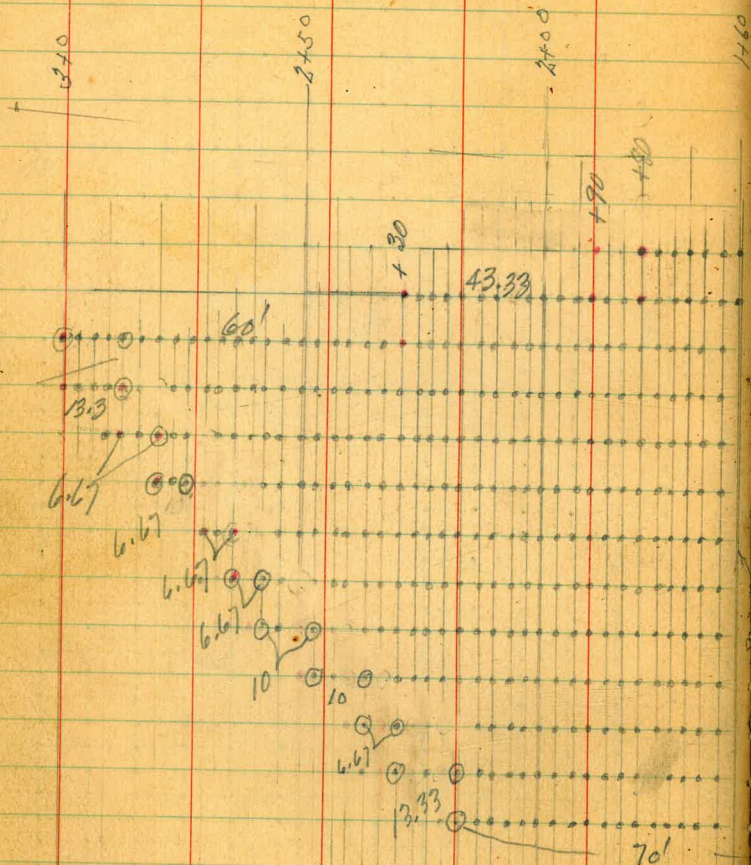 3+0
2+50
2+00
1+60
+80
+90
+30
43.33
60'
13.3
6.67
6.67
6.67
6.67
10
10
6.67
13.33
70'